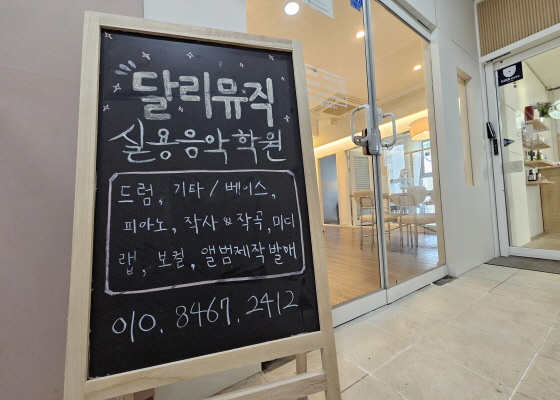 달리뮤직
실용음악학원
드럼, 기타 / 베이스,
피아노, 작사 & 작곡, 미디
랩, 보컬, 앨범제작발매
010. 8467. 2412